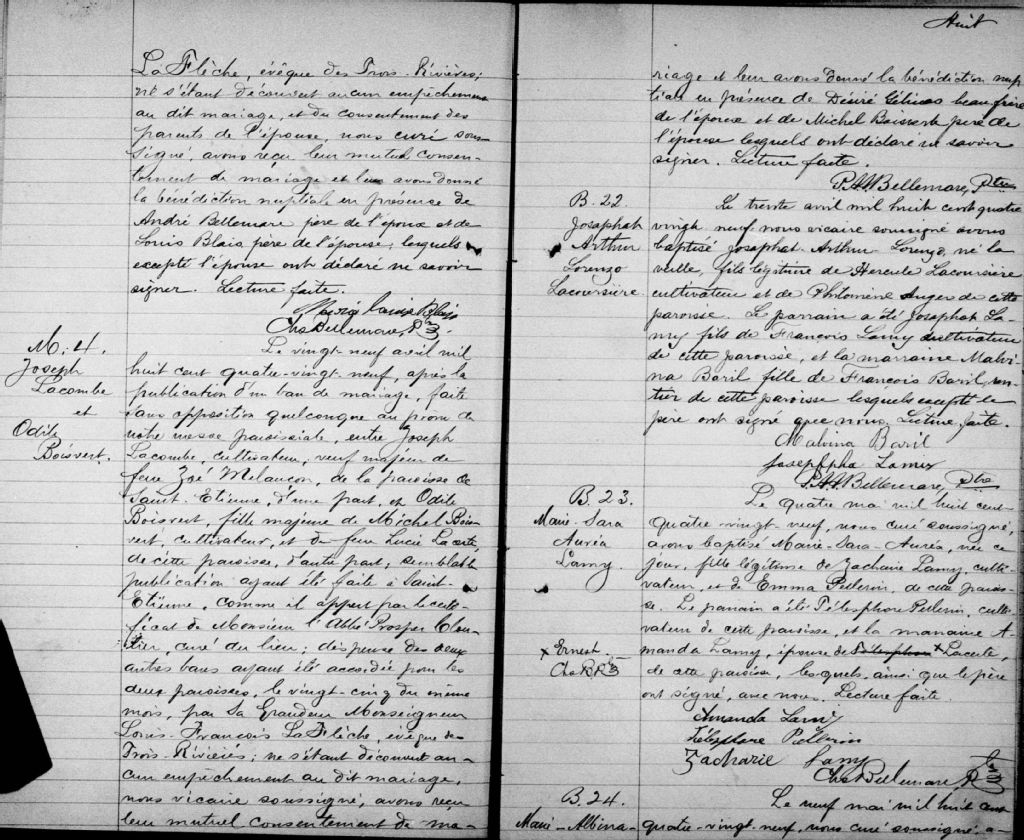 La Flèche, évêque des Trois-Rivières;
ne s'étant découvert aucun empêchement
au dit mariage, et du consentement des
parents de l'épouse, nous curé sous-
signé, avons reçu leur mutuel consen-
tement de mariage et leur avons donné
la bénédiction nuptiale en présence de
André Bellemare père de l'époux et de
Louis Blais père de l'épouse; lesquels
excepté l'épouse ont déclaré ne savoir
signer. Lecture faite.
Marie Louise Blais
Chs Bellemare, Ptre
M. 4.
Joseph
Lacombe
et
Odile
Boisvert.
Le vingt-neuf avril mil
huit cent quatre-vingt-neuf, après la
publication d'un ban de mariage, faite
sans opposition quelconque au prône de
notre messe paroissiale, entre Joseph
Lacombe, cultivateur, veuf majeur de
feue Zoé Melançon, de la paroisse de
Saint-Etienne, d'une part, et Odile
Boisvert, fille majeure de Michel Bois-
vert, cultivateur, et de feue Lucie Lacerte,
de cette paroisse, d'autre part; semblable
publication ayant été faite à Saint-
Etienne, comme il appert par le certi-
ficat de Monsieur l'Abbé Prosper Clou-
tier, curé du lieu; dispense des deux
autres bans ayant été accordée pour les
deux paroisses, le vingt-cinq du même
mois, par Sa Grandeur Monseigneur
Louis-François La Flèche, évêque des
Trois-Rivières; ne s'étant découvert au-
cun empêchement au dit mariage,
nous vicaire soussigné, avons reçu
leur mutuel consentement de ma-
Huit
riage et leur avons donné la bénédiction nup-
tiale en présence de Désiré Gélinas beau-frère
de l'époux et de Michel Boisvert père de
l'épouse lesquels ont déclaré ne savoir
signer. Lecture faite.
Bellemare, Ptre
B. 22.
Josaphat
Arthur
Lorenzo
Lacoursière
Le trente avril mil huit cent quatre
vingt neuf nous vicaire soussigné avons
baptisé Josaphat Arthur Lorenzo, né la
veille, fils légitime de Hercule Lacoursière
cultivateur et de Philomène Auger de cette
paroisse. Le parrain a été Josaphat La-
my fils de François Lamy cultivateur
de cette paroisse, et la marraine Malvi-
na Baril fille de François Baril, ren-
tier de cette paroisse lesquels excepté le
père ont signé avec nous. Lecture faite.
Malvina Baril
Lamy
Bellemare, Ptre
B. 23.
Marie-Sara
Auréa
Lamy.
Le quatre mai mil huit cent
quatre-vingt-neuf, nous curé soussigné,
avons baptisé Marie-Sara-Auréa, née ce
jour, fille légitime de Zacharie Lamy, culti-
vateur, et de Emma Pellerin, de cette parois-
se. Le parrain a été Télesphore Pellerin, culti-
vateur de cette paroisse, et la marraine A-
manda Lamy, épouse de Télesphore x Lacerte,
de cette paroisse, lesquels, ainsi que le père
ont signé, avec nous. Lecture faite.
x Ernest.
Chs B. Ptre
Amanda Lamy
Télesphore Pellerin
Zacharie Lamy
Chs Bellemare, Ptre
B. 24.
Marie-Albina-
Le neuf mai mil huit cent
quatre-vingt-neuf, nous curé soussigné a-